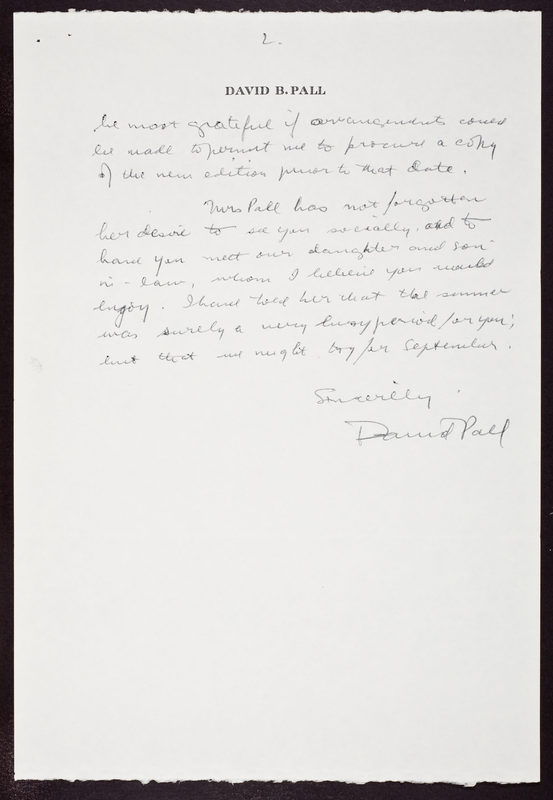 2.
DAVID B. PALL
be most grateful if arrangements could
be made to permit me to procure a copy
of the new edition prior to that date.
Mrs Pall has not forgotten
her desire to see you socially, and to
have you meet our daughter and son-
in-law, whom I believe you would
enjoy. I have told her that the summer
was surely a very busy period for you;
but that we might try for September.
Sincerely
David Pall